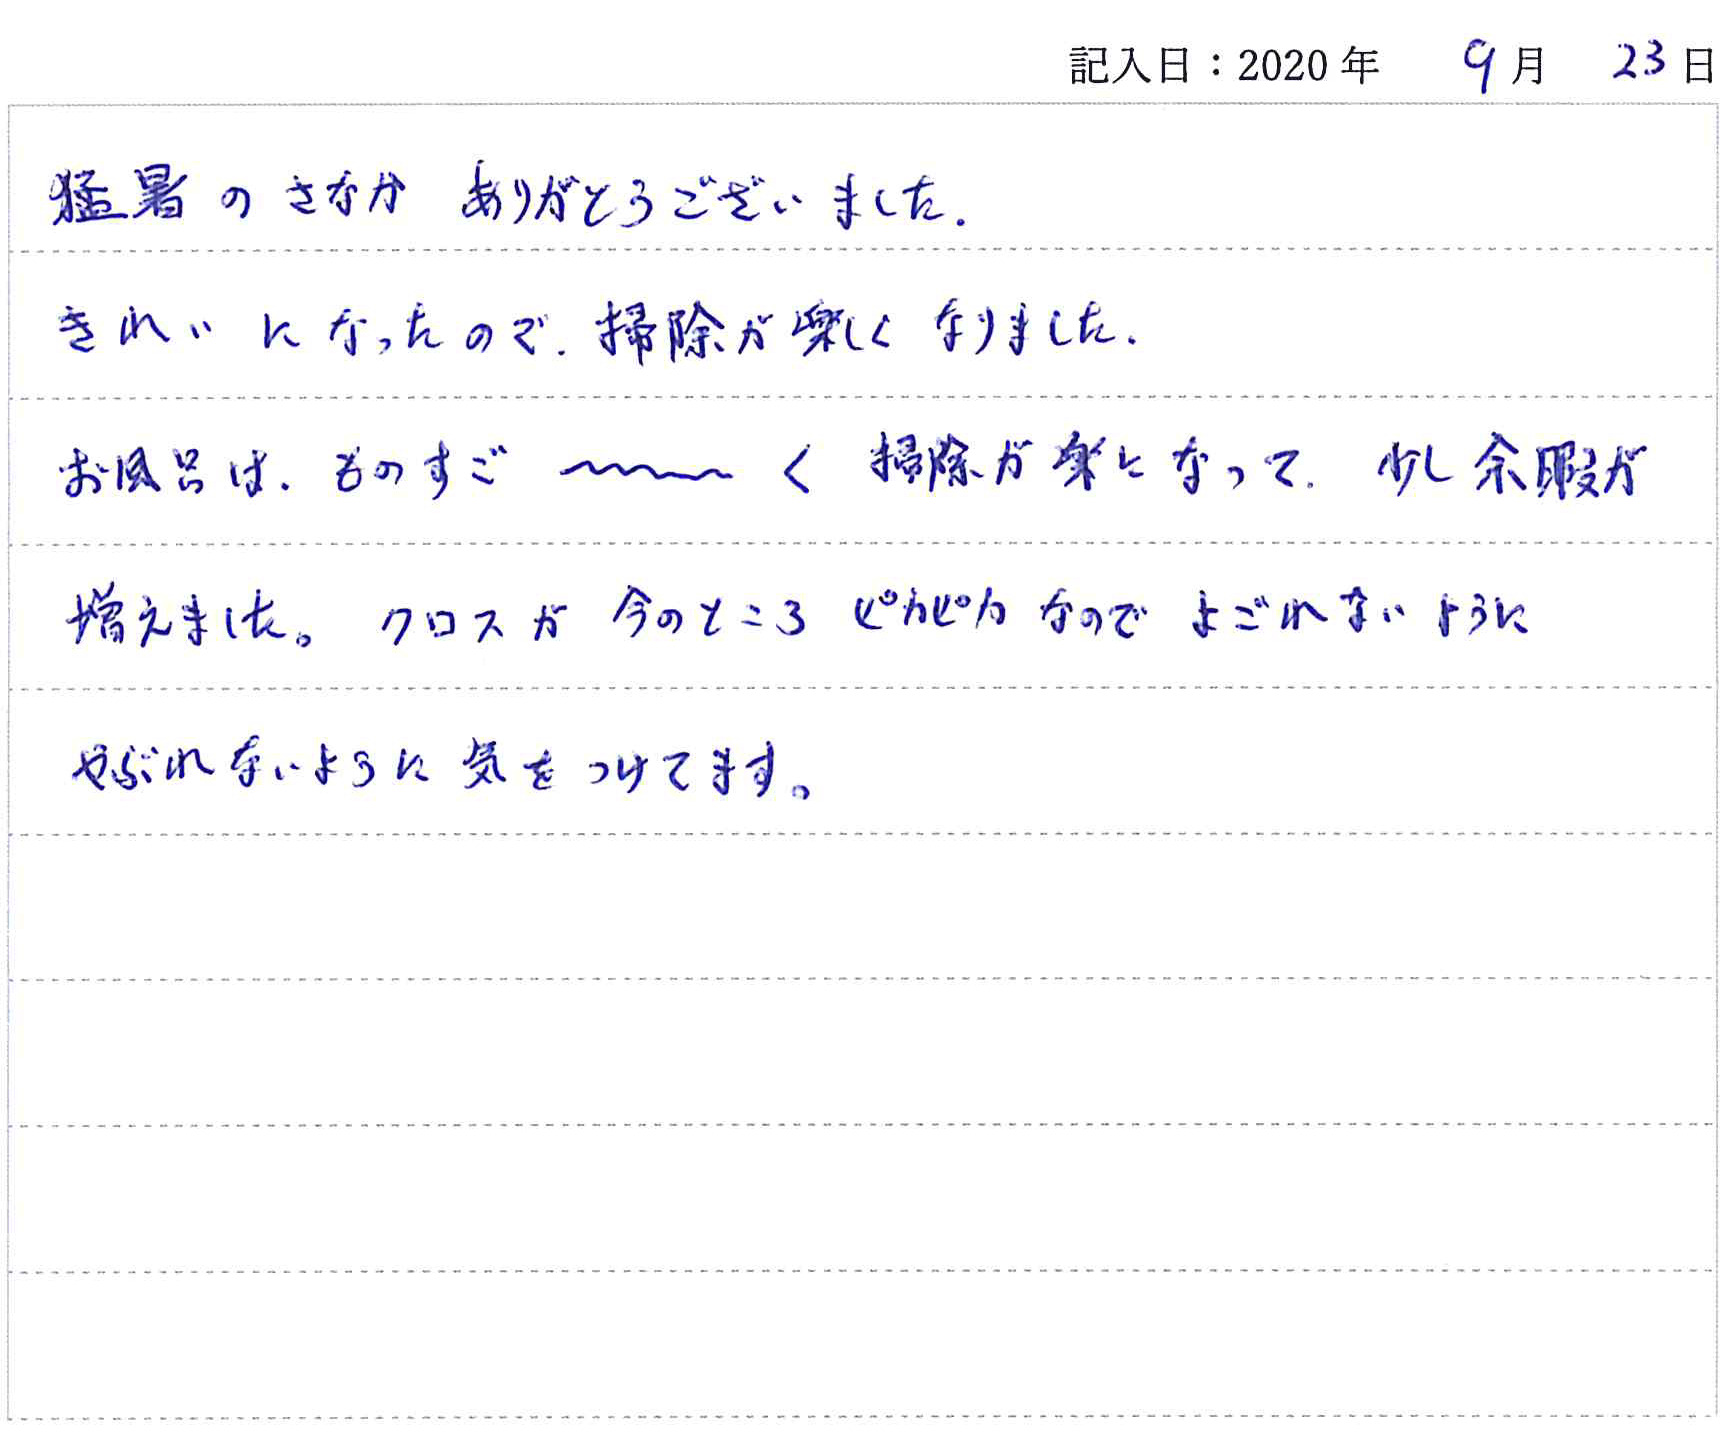 記入日：2020年 9月 23日
猛暑のさなか ありがとうございました.
きれいになったので.掃除が楽しくなりました.
お風呂は.ものすご〜〜〜く 掃除が楽になって.少し余暇が
増えました。クロスが今のところピカピカなのでよごれないように
やぶれないように気をつけてます。